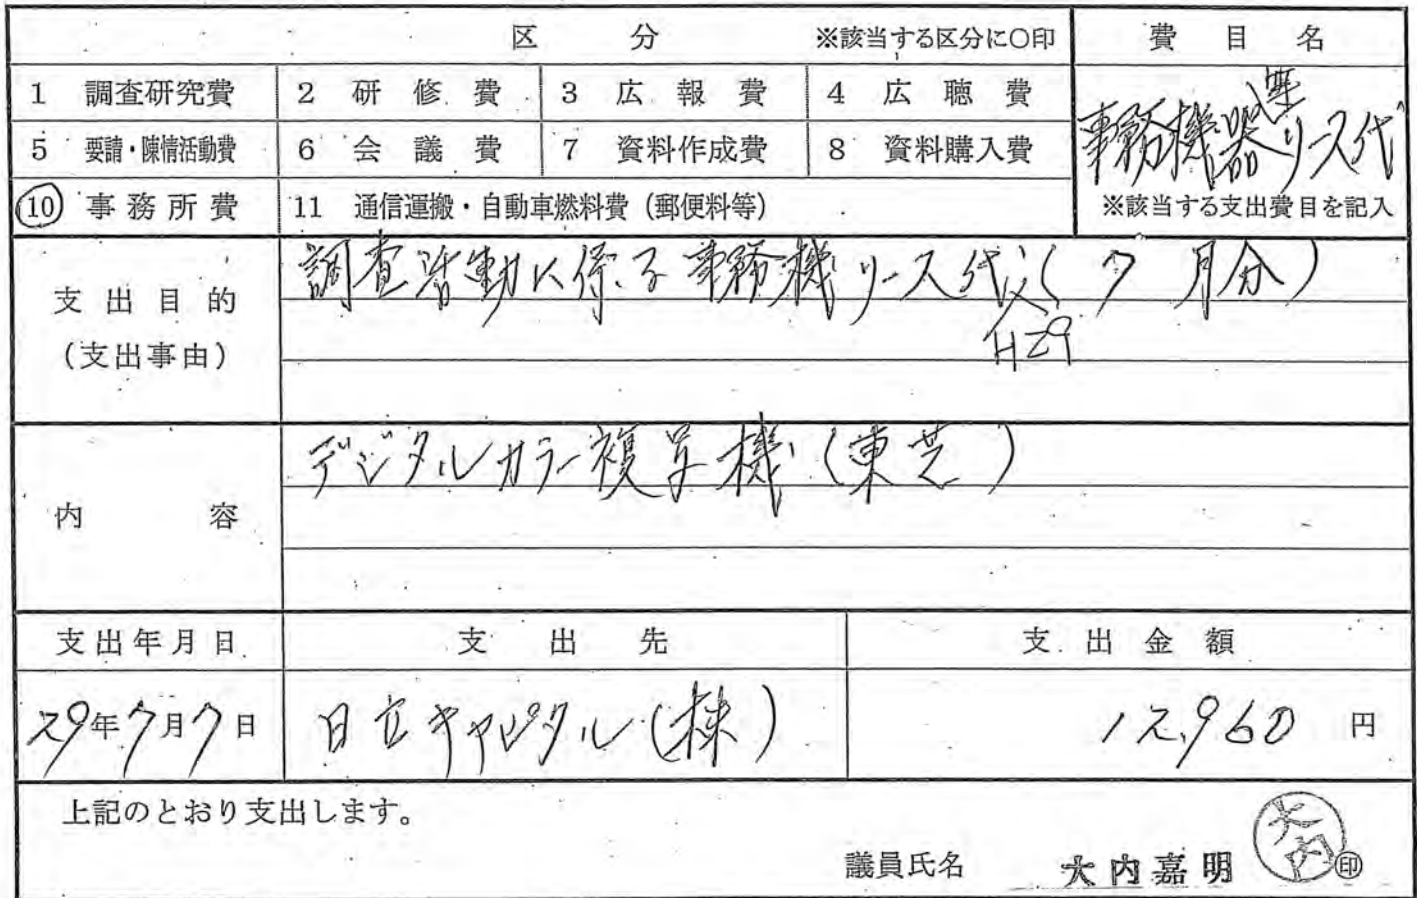 区 分 ※該当する区分に○印 費目名
1 調査研究費 2 研修費 3 広報費 4 広聴費
事務機器リース代
5 要請・陳情活動費 6 会議費 7 資料作成費 8 資料購入費
⑩ 事務所費 11 通信運搬・自動車燃料費（郵便料等） ※該当する支出費目を記入
支出目的
（支出事由）
調査活動に係る事務機リース代（7月分）
H29
内容
デジタルカラー複写機（東芝）
支出年月日 支出先 支出金額
29年7月7日 日立キャピタル（株） 12,960円
上記のとおり支出します。
議員氏名 大内嘉明 ㊞
大内